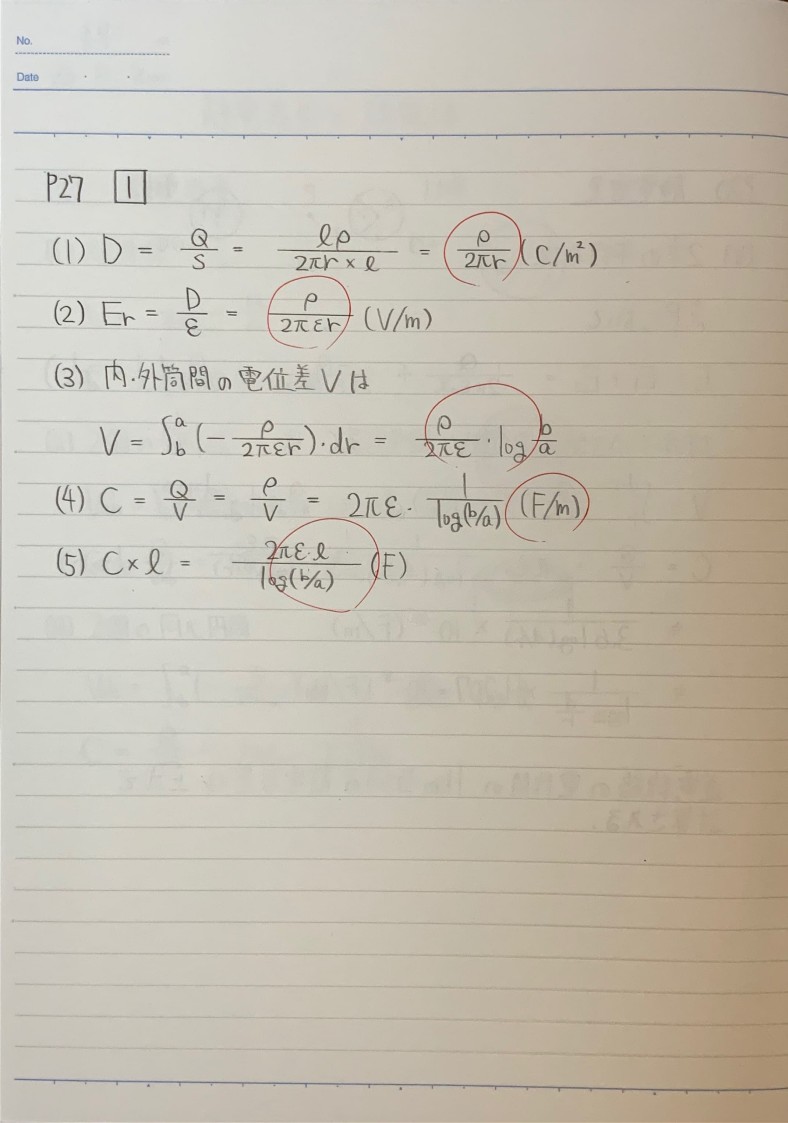 No.
Date
P27 1
(1) D = Q/S = lρ/2πr×l = ρ/2πr (C/m²)
(2) Er = D/ε = ρ/2πεr (V/m)
(3) 内・外筒間の電位差Vは
V = ∫_b^a (-ρ/2πεr)・dr = ρ/2πε・log b/a
(4) C = Q/V = ρ/V = 2πε・1/log(b/a) (F/m)
(5) C×l = 2πε・l/log(b/a) (F)